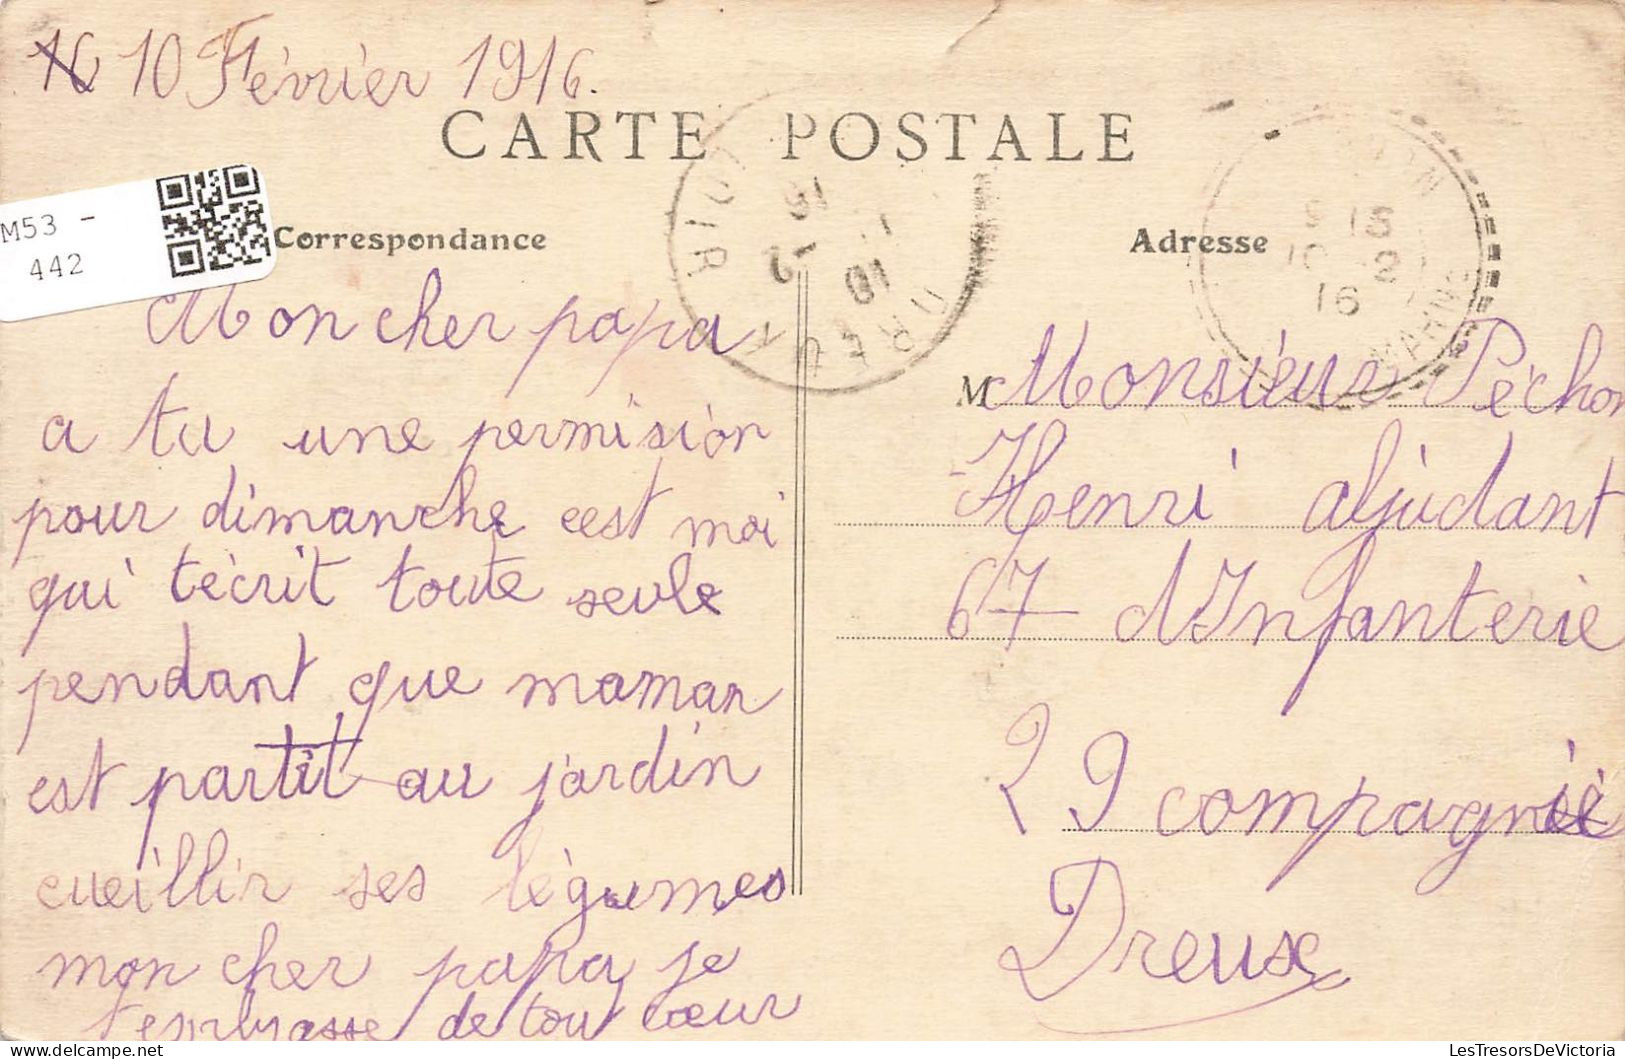 10 Février 1916.
CARTE POSTALE
M53 -
442
Correspondance
Mon cher papa
a tu une permision
pour dimanche cest moi
qui técrit toute seule
pendant que maman
est partit au jardin
cueillir ses légumes
mon cher papa je
t'embrasse de tout cœur
Adresse
M Monsieur Péchon
Henri adjudant
67 d'Infanterie
29 compagnie
Dreux
DREUX
LOIR
10 - 2
16
15
10 2
16
MARNE
LesTresorsDeVictoria.com